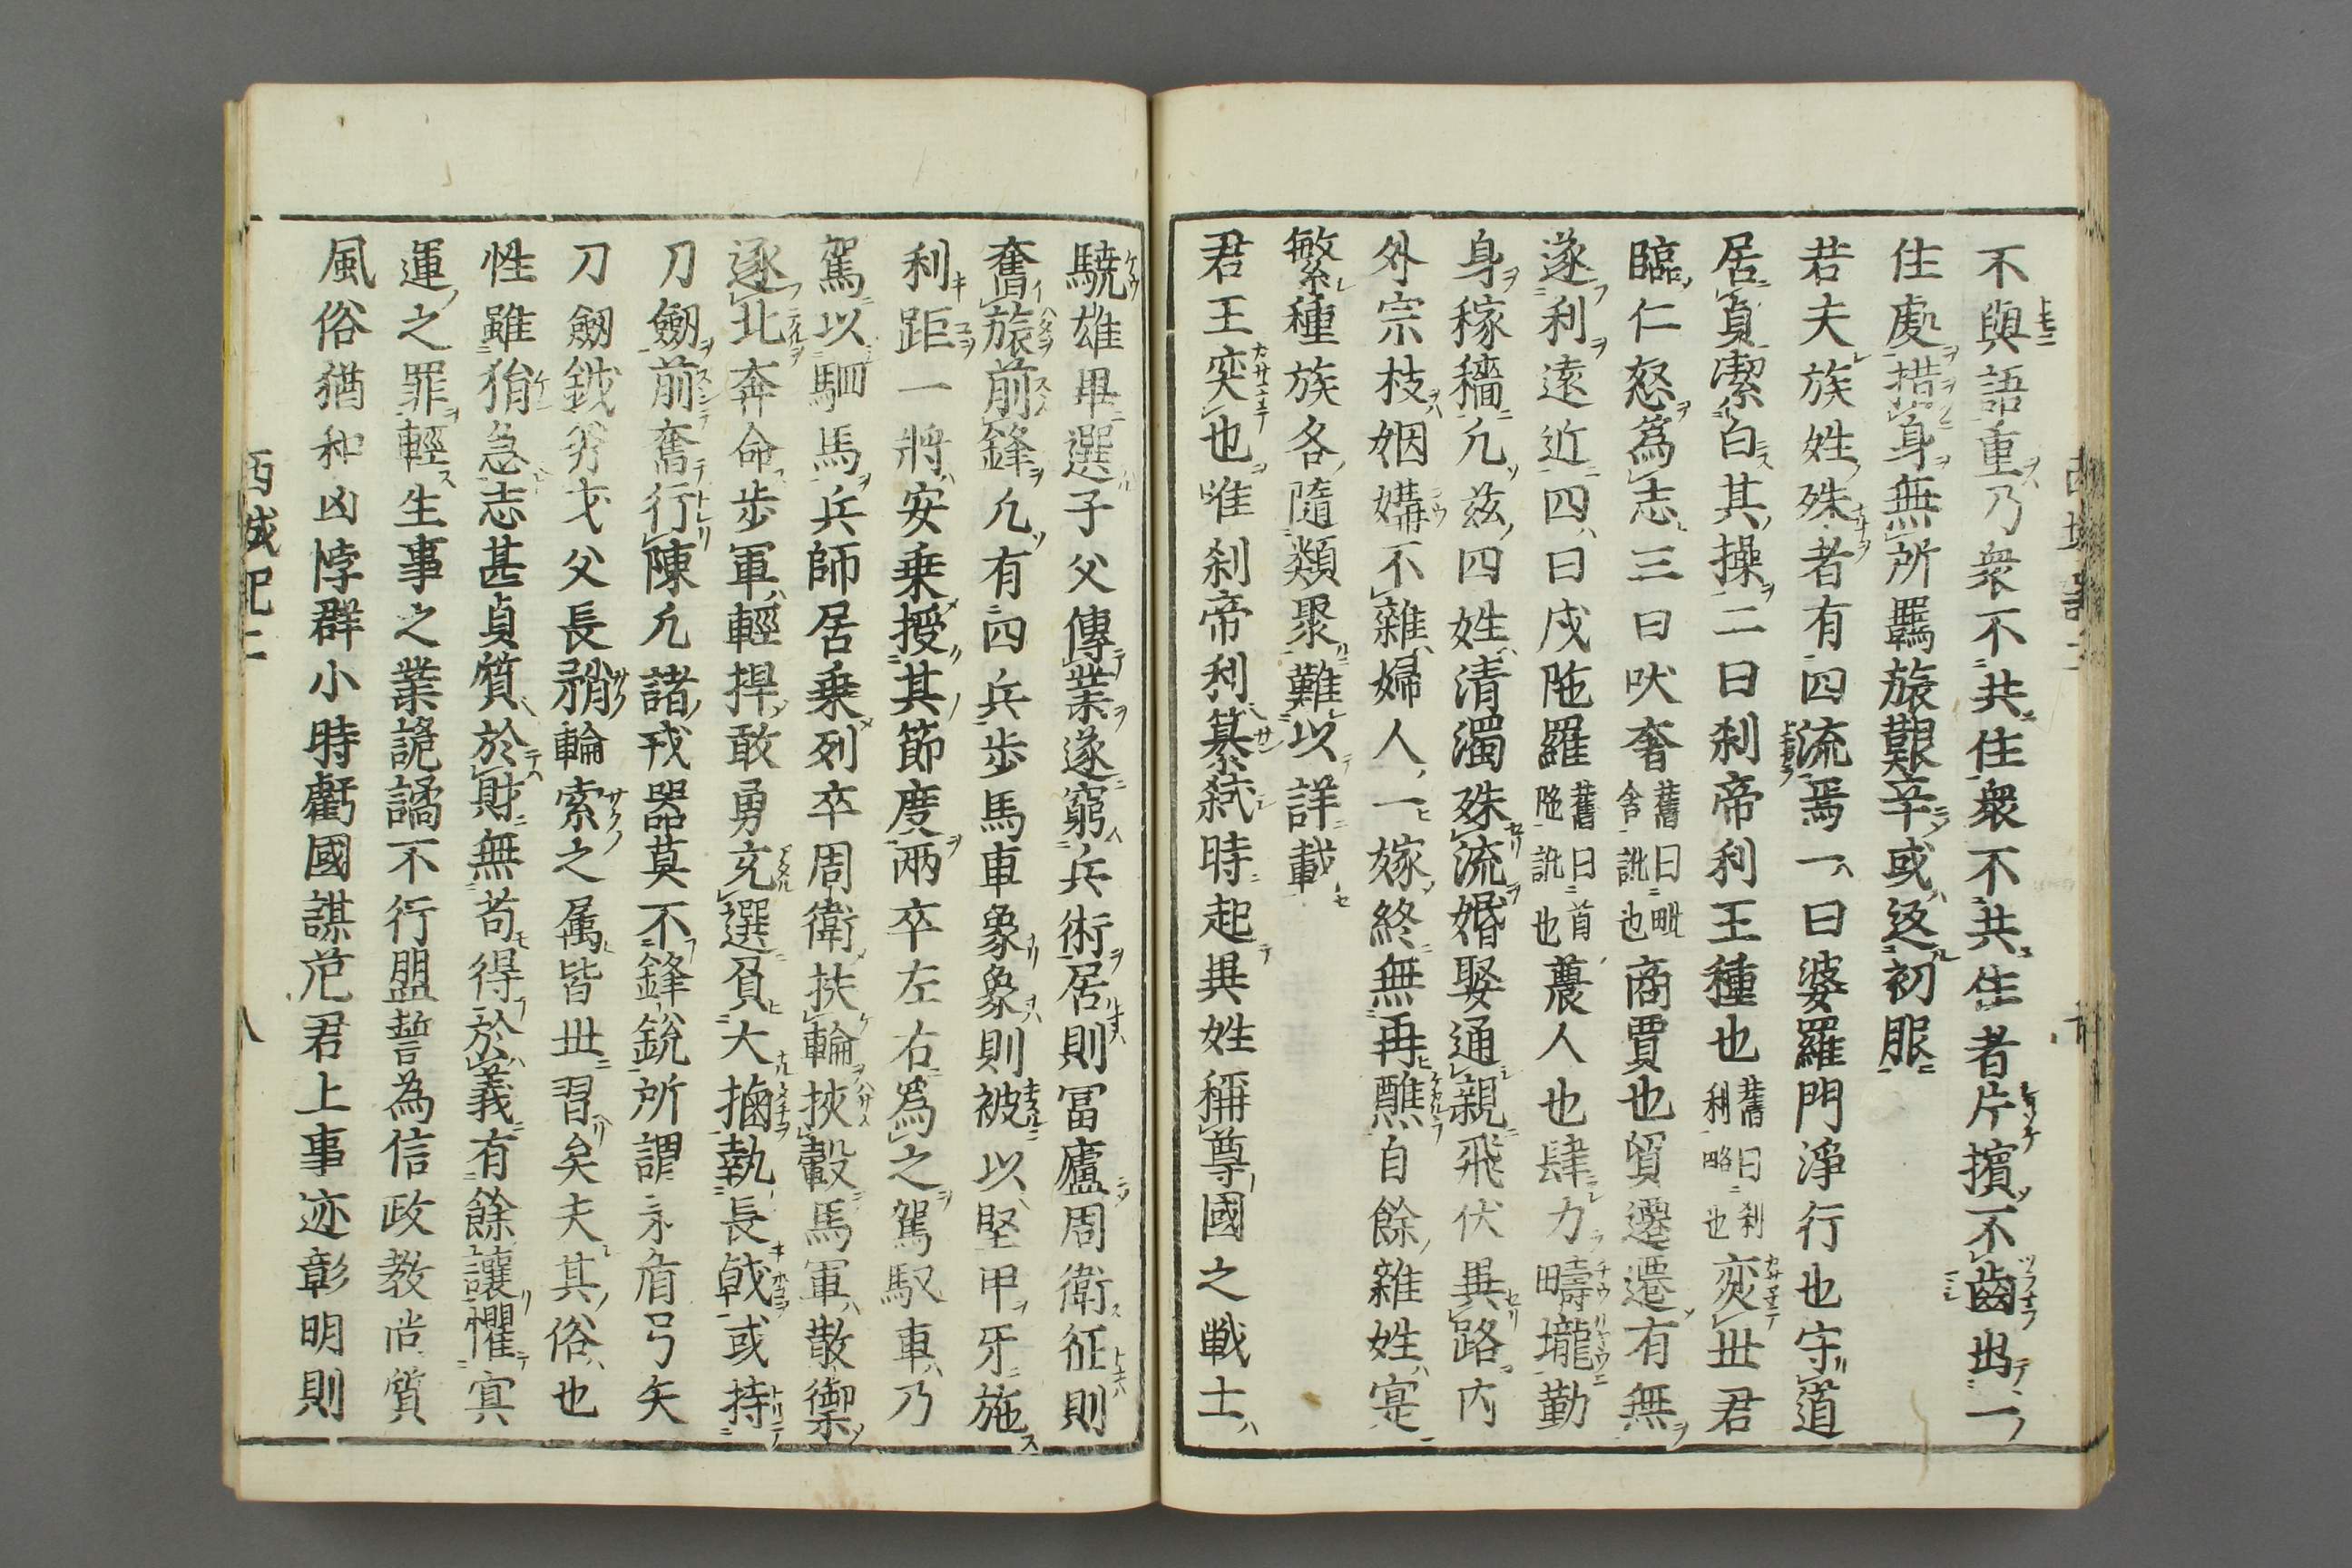 不與語重乃衆不共住衆不共住者斥擯不齒出一
住處措身無所羈旅艱辛或返初服
若夫族姓殊者有四流焉一曰婆羅門淨行也守道
居貞潔白其操二曰刹帝利王種也舊曰刹利略也奕世君
臨仁恕爲志三曰吠奢舊曰毗舍訛也商賈也貿遷遷有無
逐利遠近四曰戍陁羅舊曰首陁訛也農人也肆力疇壠勤
身稼穡凢玆四姓清濁殊流婚娶通親飛伏異路内
外宗枝姻媾不雜婦人一嫁終無再醮自餘雜姓寔
繁種族各隨類聚難以詳載
君王奕也唯刹帝利簒弑時起異姓稱尊國之戰士
驍雄畢選子父傳業遂窮兵術居則冨廬周衛征則
奮旅前鋒凢有四兵步馬車象象則被以堅甲牙施
利距一將安乗授其節度兩卒左右爲之駕馭車乃
駕以駟馬兵師居乗列卒周衛扶輪挾轂馬軍散禦
逐北奔命步軍輕捍敢勇充選負大擄執長戟或持
刀劔前奮行陳凢諸戎器莫不鋒銳所謂矛盾弓矢
刀劔鉞斧戈父長矟輪索之属皆世習矣夫其俗也
性雖狷急志甚貞質於財無苟得於義有餘讓懼冥
運之罪輕生事之業詭譎不行盟誓為信政教尚質
風俗猶和凶悖群小時虧國謀危君上事迹彰明則
西域記二 八